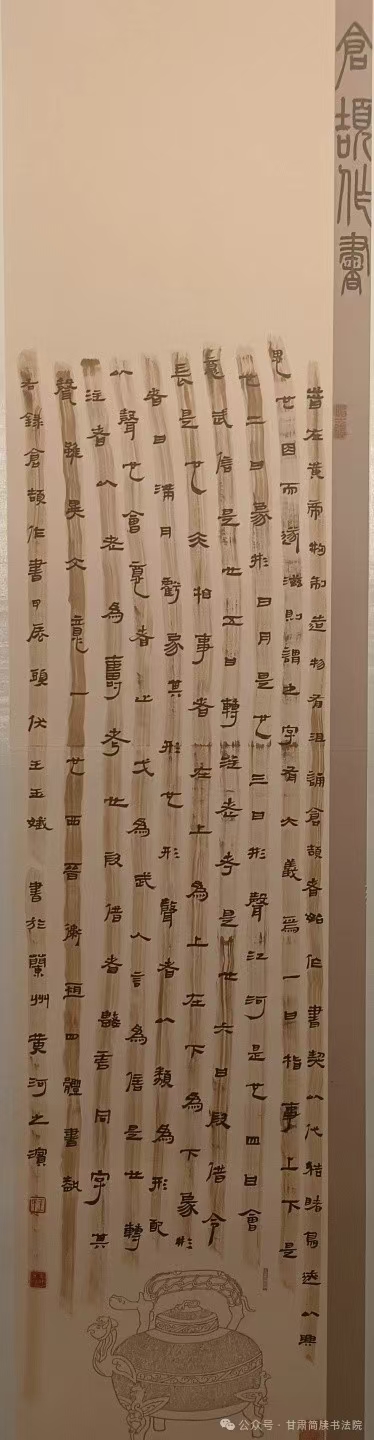 倉頡作書
昔在黃帝制造物有沮誦倉頡者始作書契以代結睹鳥迹以興
思也因而遂滋則謂之字有六義焉一曰指事上下是
也二曰象形日月是也三曰形聲江河是也四曰會
意武信是也五曰轉注老考是也六曰假借令
長是也夫指事者在上為上在下為下象形
者日滿月虧象其形也形聲者以類為形配
以聲也會意者止戈為武人言為信是也轉
注者以老為壽考也假借者數言同字其
聲雖異文意一也西晉衛恒四體書勢
右錄倉頡作書甲辰頭伏王玉娥書於蘭州黃河之濱
公众号 · 甘肃简牍书法院